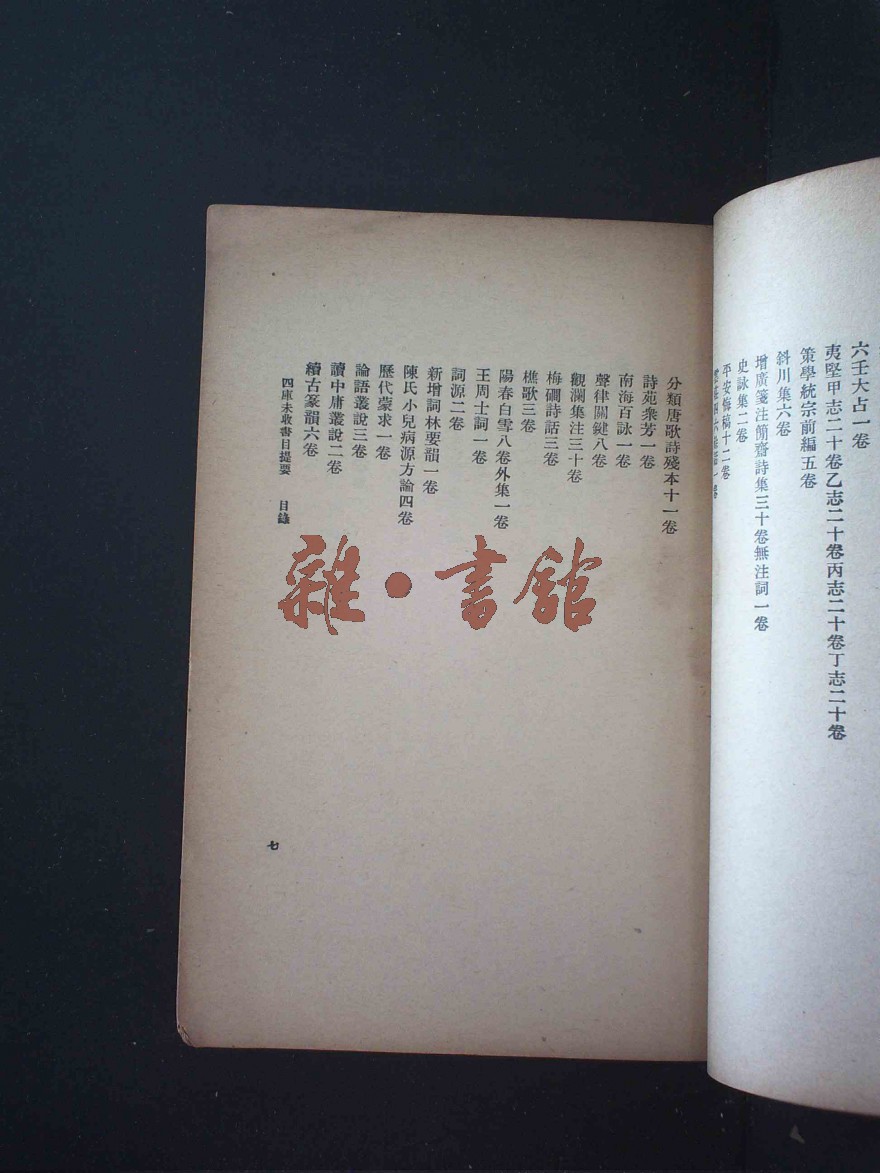 六壬大占一卷
夷堅甲志二十卷乙志二十卷丙志二十卷丁志二十卷
策學統宗前編五卷
斜川集六卷
增廣箋注簡齋詩集三十卷無注詞一卷
史詠集二卷
平安悔稿十二卷
分類唐歌詩殘本十一卷
詩苑衆芳一卷
南海百詠一卷
聲律關鍵八卷
觀瀾集注三十卷
梅磵詩話三卷
樵歌三卷
陽春白雪八卷外集一卷
王周士詞一卷
詞源二卷
新增詞林要韻一卷
陳氏小兒病源方論四卷
歷代蒙求一卷
論語叢說三卷
讀中庸叢說二卷
續古篆韻六卷
四庫未收書目提要 目錄
七
雜·書館